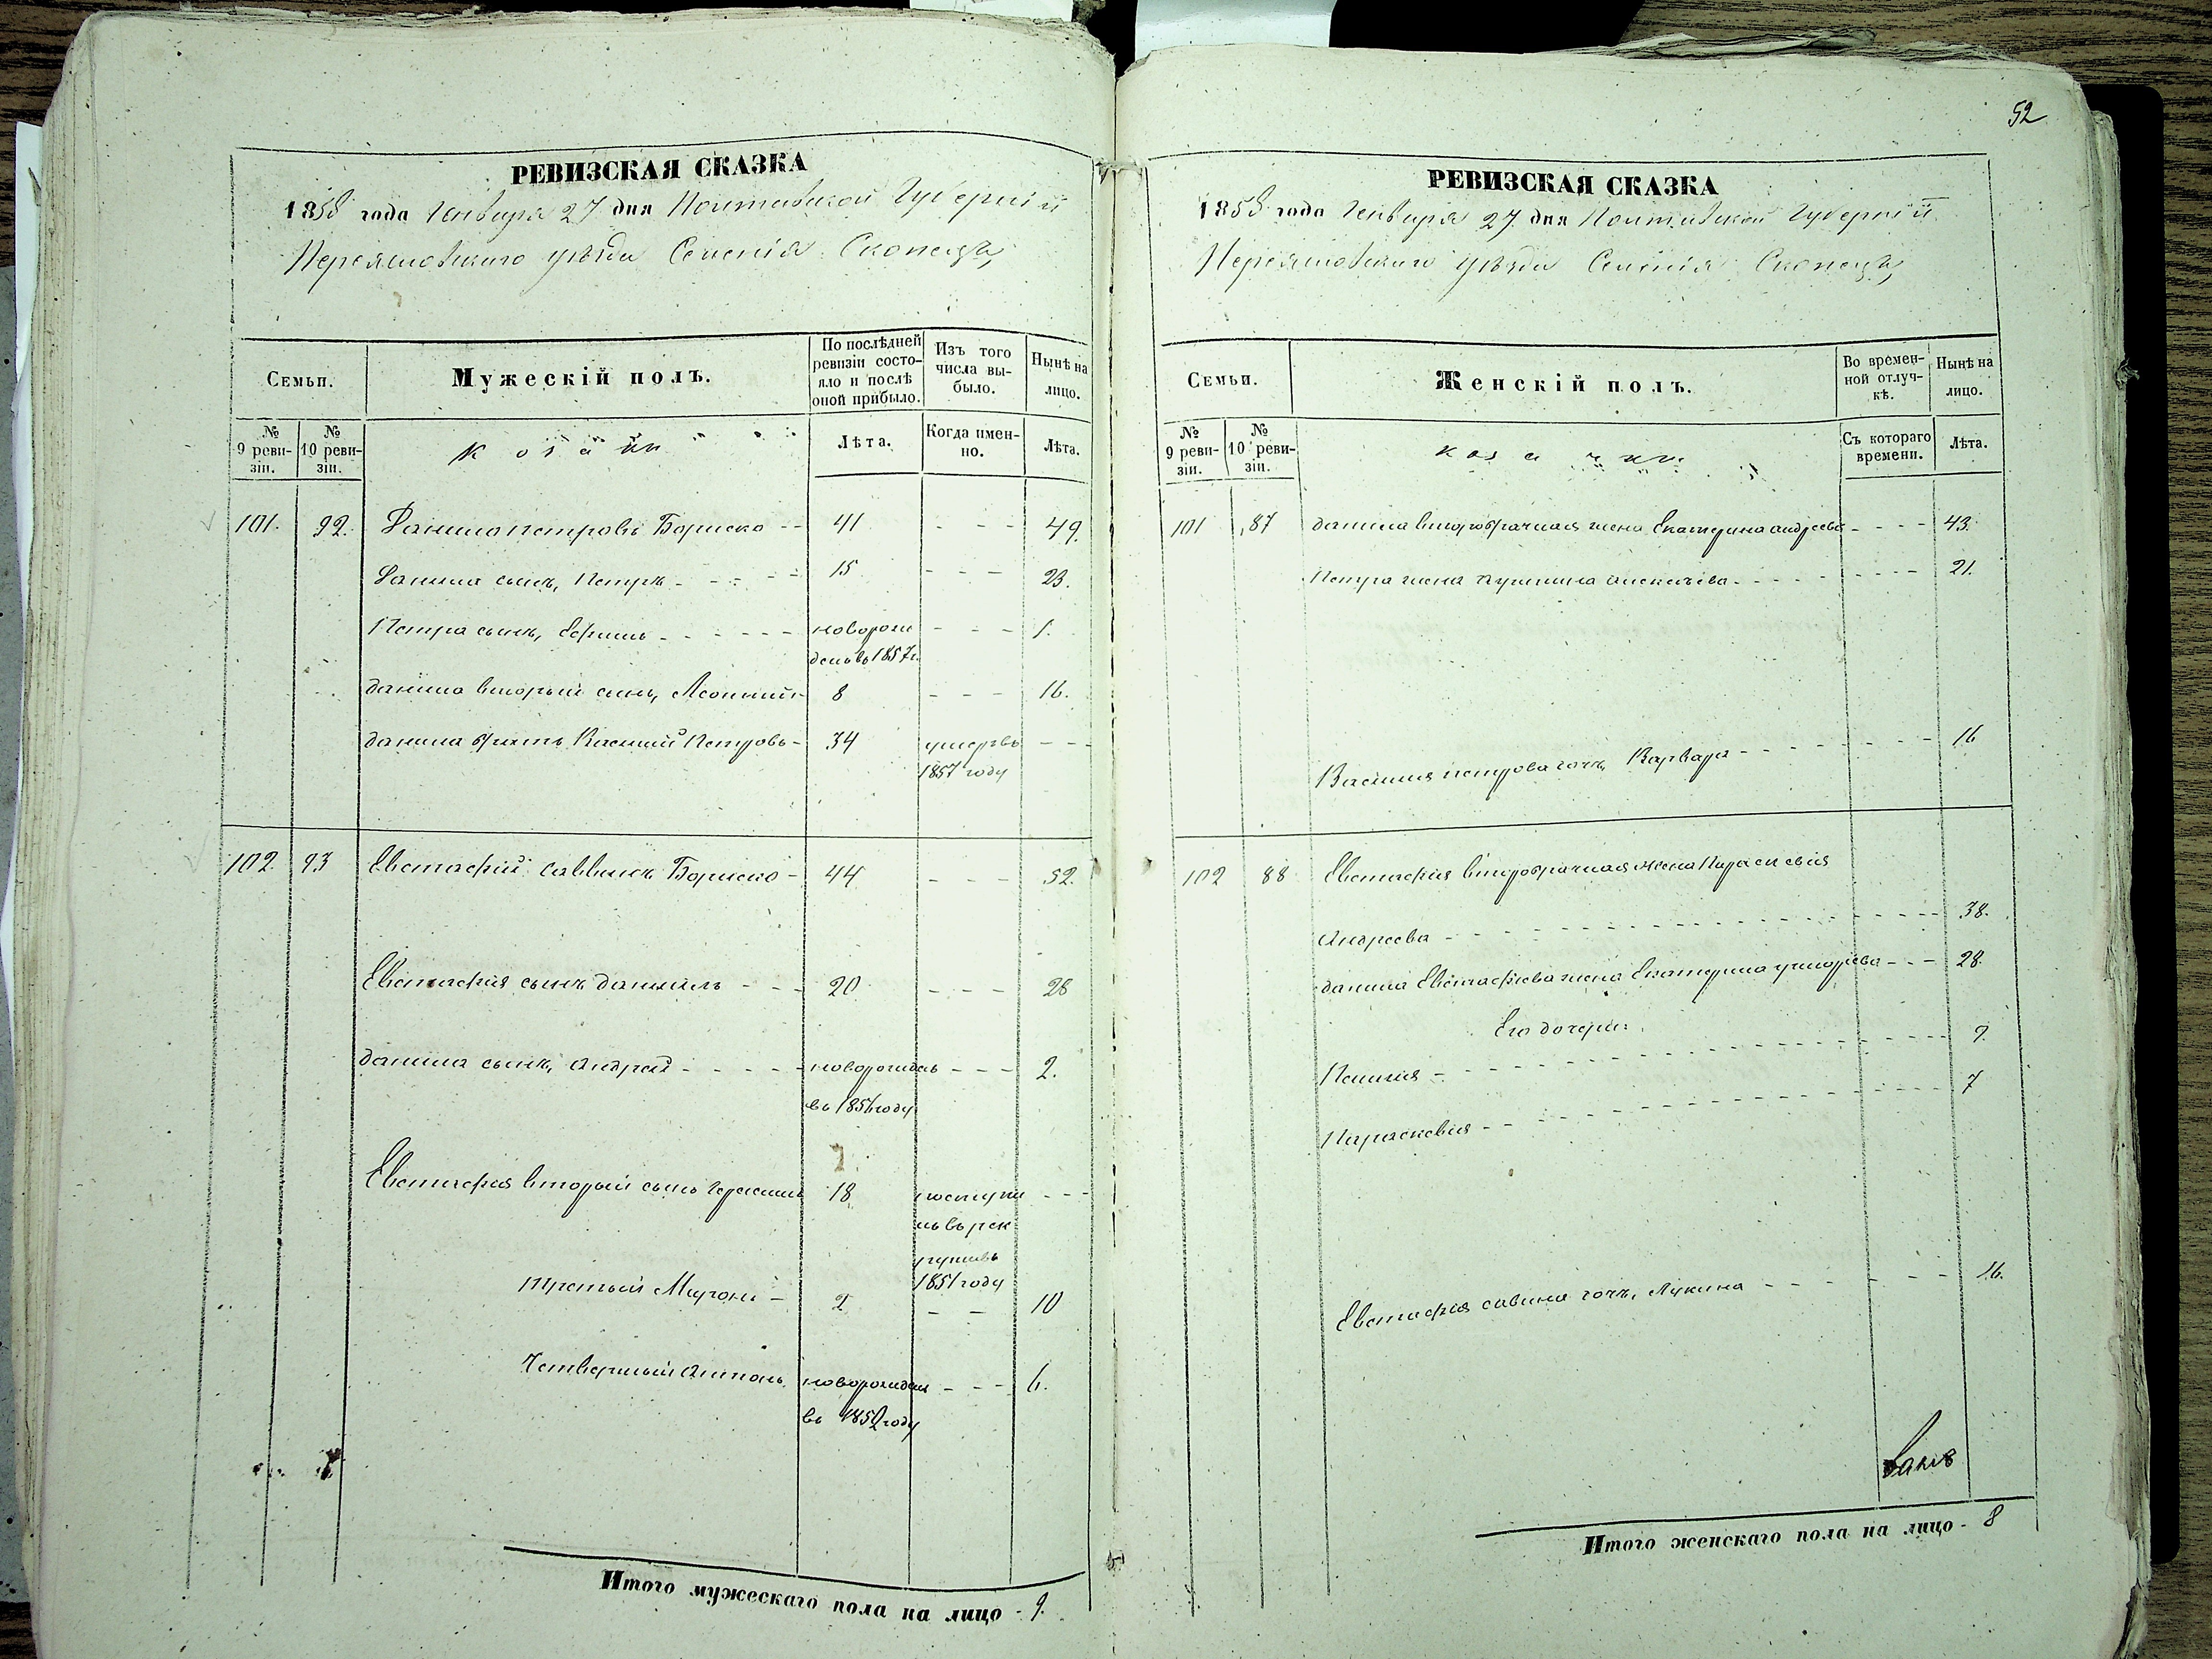 52
РЕВИЗСКАЯ СКАЗКА
1858 года Генваря 27 дня Полтавской Губерніи
Переяславскаго уѣзда Селенія Скопецъ,
Семьи.
Мужескій полъ.
По послѣдней ревизіи состояло и послѣ оной прибыло.
Изъ того числа выбыло.
Нынѣ на лицо.
№ 9 ревизіи.
№ 10 ревизіи.
Козаки
Лѣта.
Когда именно.
Лѣта.
101. 92. Данило Петровъ Бориско - - 41 - - - 49.
Данила сынъ, Петръ - - - - - 15 - - - 23.
Петра сынъ, Ефимъ - - - - - - новорож - - - 1.
денъ въ 1857 г.
Данила вторый сынъ, 8 - - - 16.
Данила братъ Василий Петровъ - 34 умеръ въ - - -
1857 году
102. 93 Евстафій Саввинъ Бориско - 44 - - - 52.
Евстафия сынъ Даниилъ - - - 20 - - - 28
Данила сынъ, Андрей - - - - - новорожденъ - - - 2.
въ 1856 году
Евстафия вторый сынъ Герасимъ 18 поступи - - -
лъ въ рек
руты въ
1851 году
третый Миронъ - 2 - - 10
Четвертый Антонъ новорожденъ - - - 6.
въ 1852 году
Итого мужескаго пола на лицо - 9.
РЕВИЗСКАЯ СКАЗКА
1858 года Генваря 27 дня Полтавской Губерніи
Переяславскаго уѣзда Селенія Скопецъ,
Семьи.
Женскій полъ.
Во временной отлучкѣ.
Нынѣ на лицо.
№ 9 ревизіи.
№ 10 ревизіи.
козачки
Съ котораго времени.
Лѣта.
101 87 Данила второбрачная жена Екатерина Андреева - - - - 43.
Петра жена Алексѣева - - - - 21.
Василия Петрова дочь, Варвара - - - - 16
102 88 Евстафия второбрачная жена Параскевія
Андреева - - - - 38.
Данила Евстафіева жена Екатерина Григорьева - - - 28.
Его дочери:
- - - - 9.
Параскевия - - - - 7
Евстафия Савина дочь, - - - - 16.
Итого женскаго пола на лицо - 8